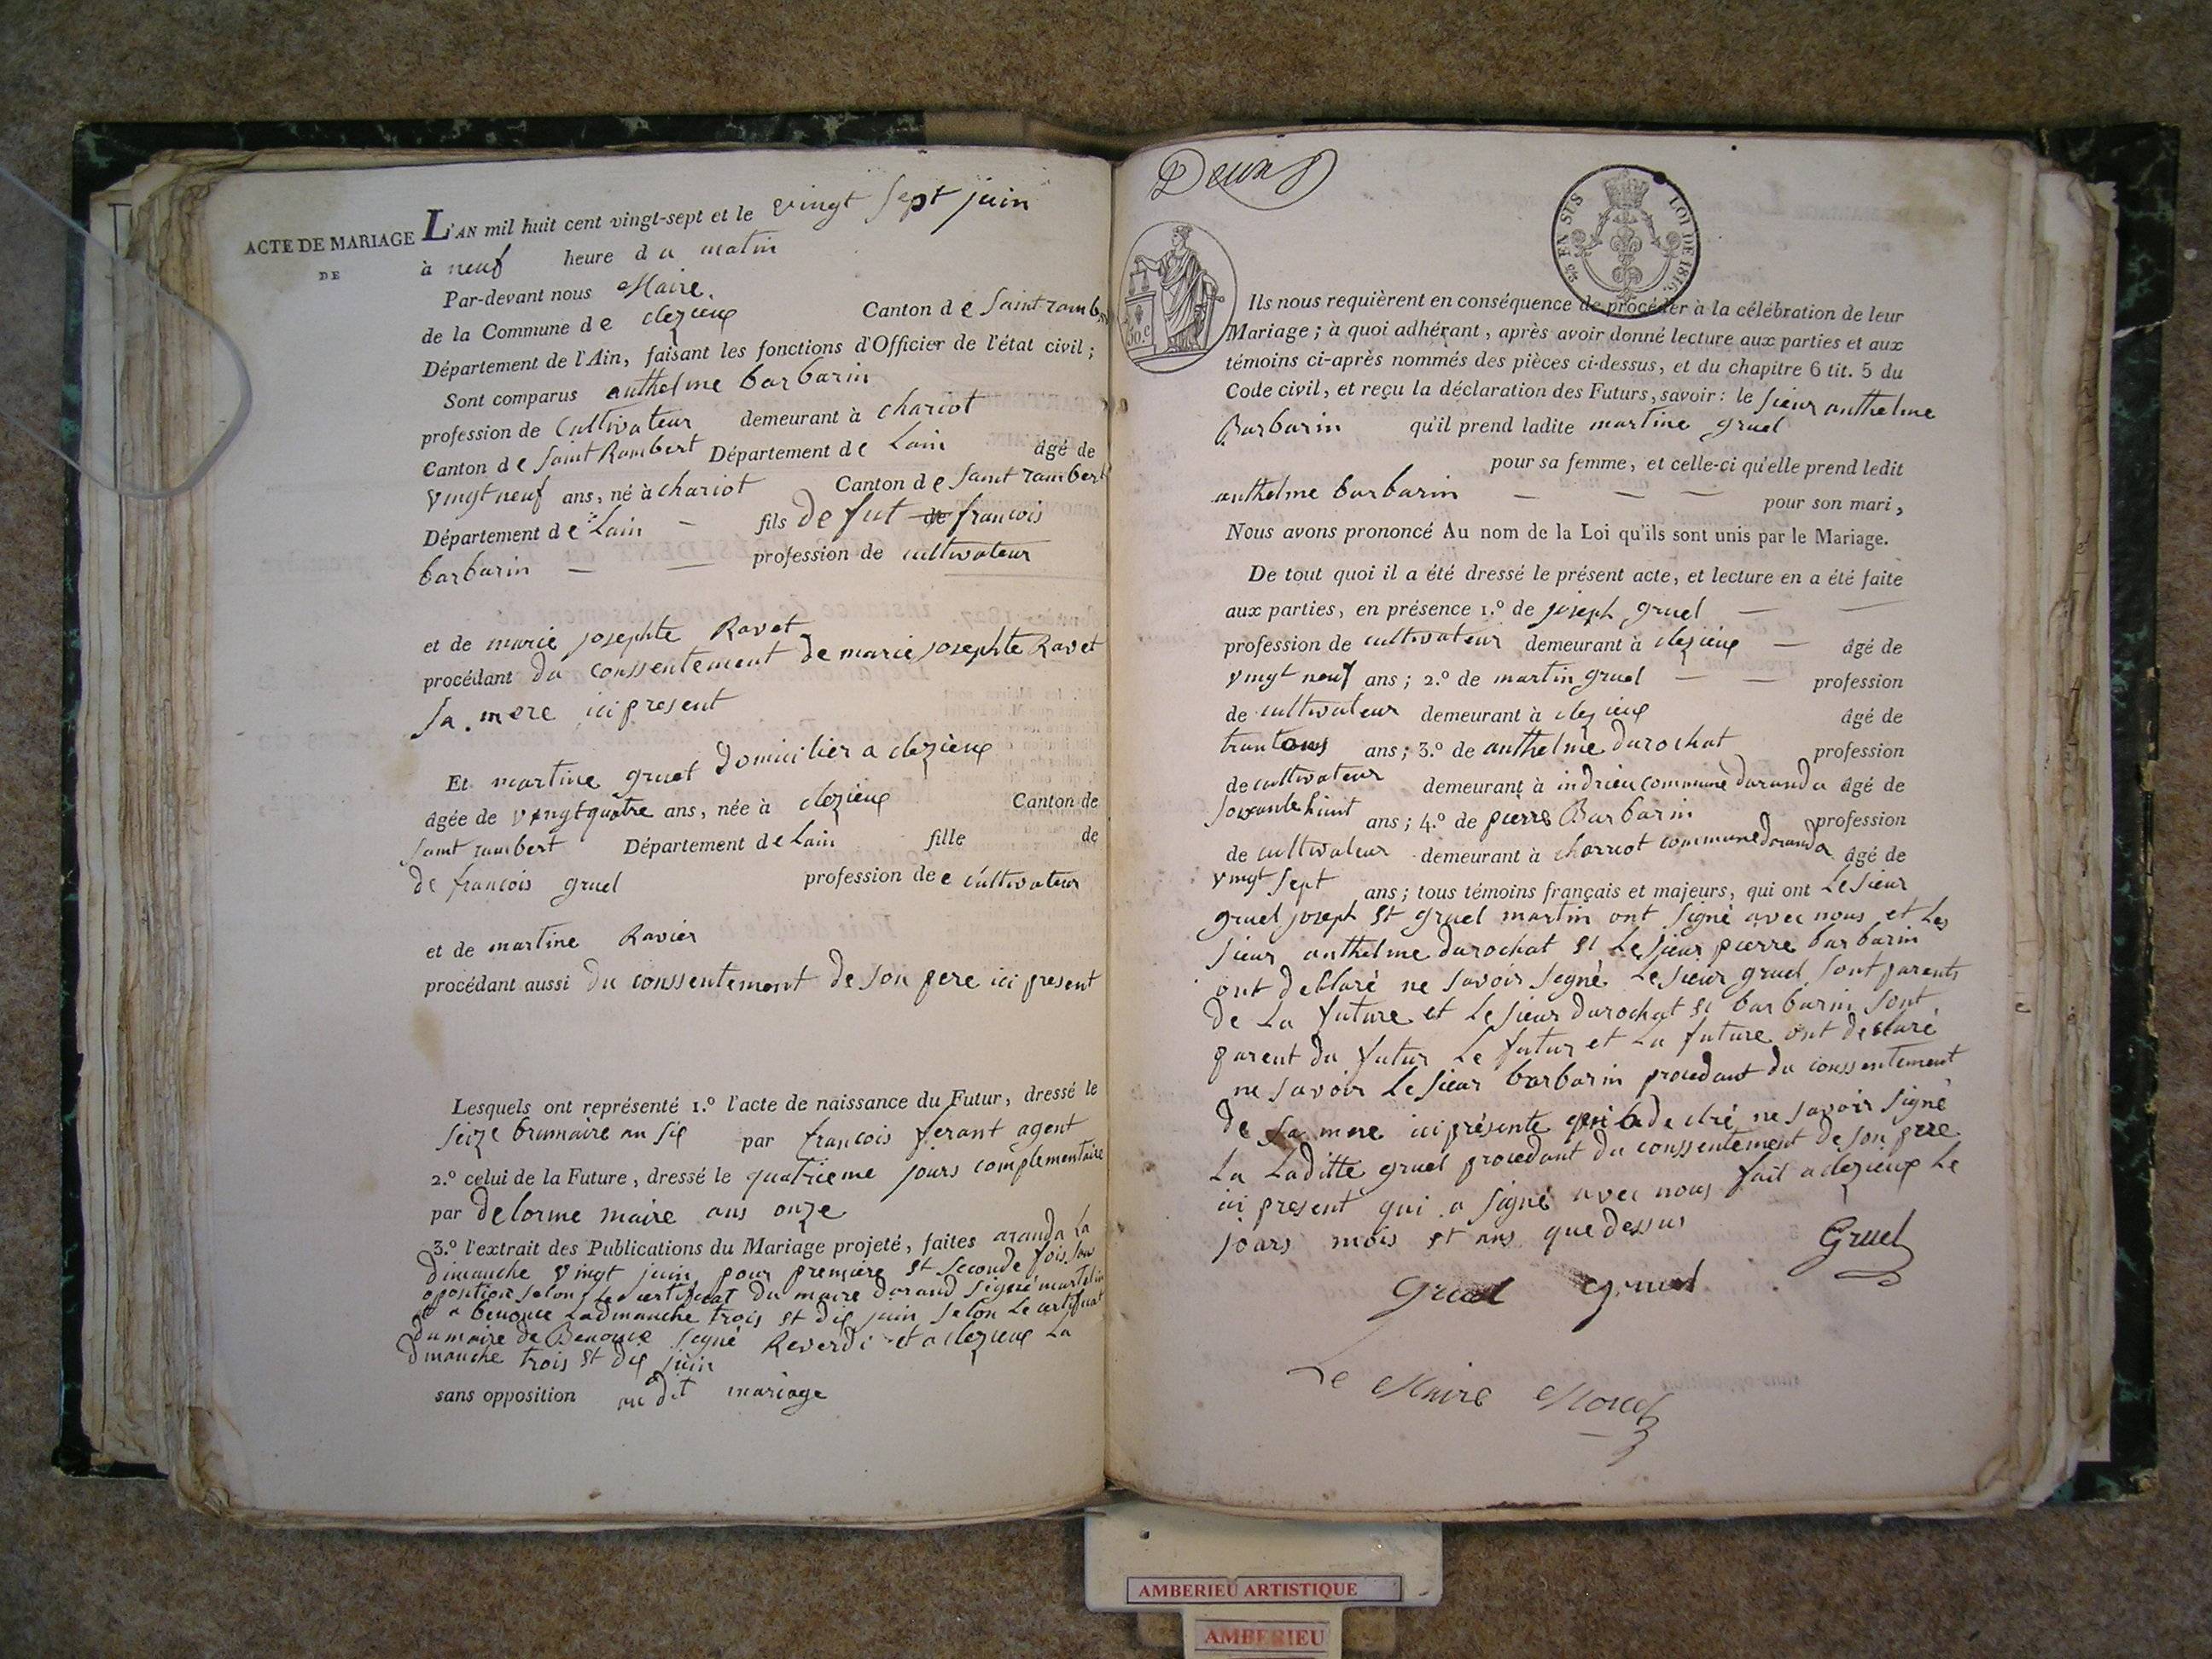 ACTE DE MARIAGE
DE
L'AN mil huit cent vingt-sept et le vingt sept juin
à neuf heure du matin
Par-devant nous Maire
de la Commune de clezieux Canton de Saint ramb
Département de l'Ain, faisant les fonctions d'Officier de l'état civil ;
Sont comparus anthelme barbarin
profession de Cultivateur demeurant à chariot
Canton de Saint Rambert Département de Lain âgé de
vingt neuf ans, né à chariot Canton de Saint rambert
Département de Lain - fils de fut de francois
barbarin — — profession de cultivateur
et de marie josephte Ravet
procédant du conssentement de marie josephte Ravet
sa mere ici present
Et martine gruel domicilier a clezieux
âgée de vingt quatre ans, née à clezieux Canton de
Saint rambert Département de Lain fille de
de francois gruel profession de cultivateur
et de martine Ravier
procédant aussi du conssentement de son pere ici present
Lesquels ont représenté 1.º l'acte de naissance du Futur, dressé le
seize brumaire an six par francois ferant agent
2.º celui de la Future, dressé le quatrieme jours complementaire
par delorme maire ans onze
3.º l'extrait des Publications du Mariage projeté, faites aranda La
dimanche vingt juin pour premiere et seconde fois sans
oposition selon Le certificat du maire durand signé martelin
et a benonce La dmanche trois et dix juin selon Le certificat
du maire de Benonce signé Reverdi et a clezieux La
dmanche trois et dix juin
sans opposition au dit mariage
Deux
25ᶜ EN SUS LOI DE 1816.
50.c
Ils nous requièrent en conséquence de procéder à la célébration de leur
Mariage ; à quoi adhérant, après avoir donné lecture aux parties et aux
témoins ci-après nommés des pièces ci-dessus, et du chapitre 6 tit. 5 du
Code civil, et reçu la déclaration des Futurs, savoir : le sieur anthelme
Barbarin qu'il prend ladite martine gruel
pour sa femme, et celle-ci qu'elle prend ledit
anthelme barbarin — — — pour son mari,
Nous avons prononcé Au nom de la Loi qu'ils sont unis par le Mariage.
De tout quoi il a été dressé le présent acte, et lecture en a été faite
aux parties, en présence 1.º de joseph gruel — —
profession de cultivateur demeurant à clezieux — âgé de
vingt neuf ans ; 2.º de martin gruel — — profession
de cultivateur demeurant à clezieux âgé de
ans ; 3.º de anthelme durochat profession
de cultivateur demeurant à indrieu commune daranda âgé de
soixante huint ans ; 4.º de pierre Barbarin profession
de cultivateur demeurant à charriot commune daranda âgé de
vingt sept ans ; tous témoins français et majeurs, qui ont Le sieur
gruel joseph et gruel martin ont signé avec nous et Les
sieur anthelme durochat et Le sieur pierre barbarin
ont declaré ne savoir signé Le sieur gruel sont parents
de La future et Le sieur durochat et barbarin sont
parent du futur Le futur et La future ont declaré
ne savoir Le sieur barbarin procedant du conssentement
de sa mere ici présente qui a declré ne savoir signé
La Laditte gruel procedant du conssentement de son pere
ici present qui a signé avec nous fait a clezieux Le
jours mois et ans que dessus
Gruel
gruel gruel
Le Maire
AMBERIEU ARTISTIQUE
AMBERIEU